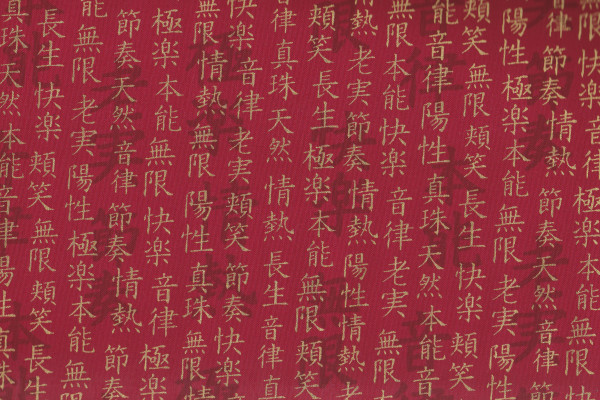 限快楽音律極楽本能無限快
音律節奏情熱節奏天然音律
陽性極楽本能無限老実陽性
頬笑無限頬笑長生快楽頬笑
能音律陽性真珠天然本能音
無限本能快楽音律老実無限
熱老実節奏情熱陽性情熱老
頬笑長生極楽本能無限頬笑
律真珠天然情熱長生音律真
快楽音律老実頬笑節奏快楽
無限情熱無限陽性真珠無限
極楽本能無限快楽音律極楽
節奏天然音律節奏情熱節奏
能無限老実陽性極楽本能無限
長生快楽頬笑無限頬笑長生
真珠天然本能音律陽性真珠